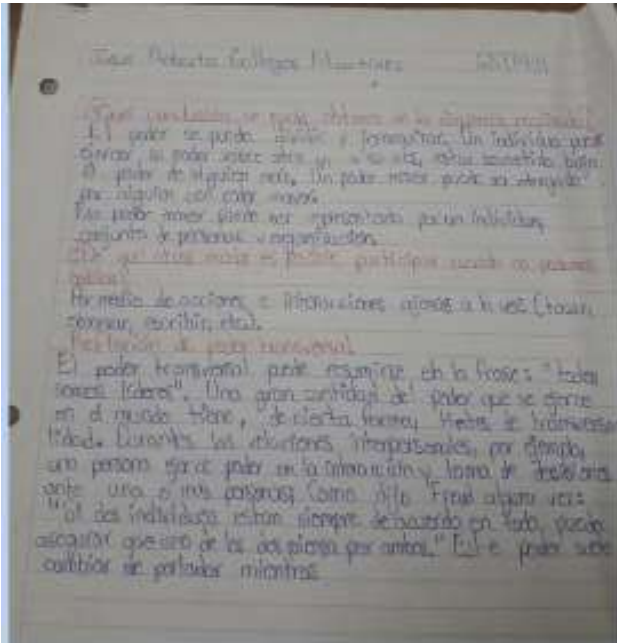 Roberto Gallegos Martínez
¿Qué conclusión se puede obtener en la dinámica realizada?
El poder se puede dividir y Un individuo puede
ejercer su poder sobre otro y, a su vez, estar sometido bajo
el poder de alguien más. Un poder menor puede ser otorgado
por alguien con poder mayor.
poder mayor puede ser representado por un individuo,
conjunto de personas u organización.
¿De qué otros modos es posible participar cuando no podemos
hablar?
Por medio de acciones e interacciones ajenas a la voz (tocar,
escribir, etc).
de poder transversal
El poder transversal puede resumirse en la frase: "todos
somos líderes". Una gran cantidad del poder que se ejerce
en el mundo tiene, de cierta forma, de transversa
lidad. Durante las relaciones interpersonales, por ejemplo,
una persona ejerce poder en la interacción y toma de decisiones
ante una o más personas; Como dijo Freud alguna vez:
"si dos individuos están siempre de acuerdo en todo, puedo
asegurar que uno de los dos piensa por ambos." Este poder suele
cambiar de portador mientras